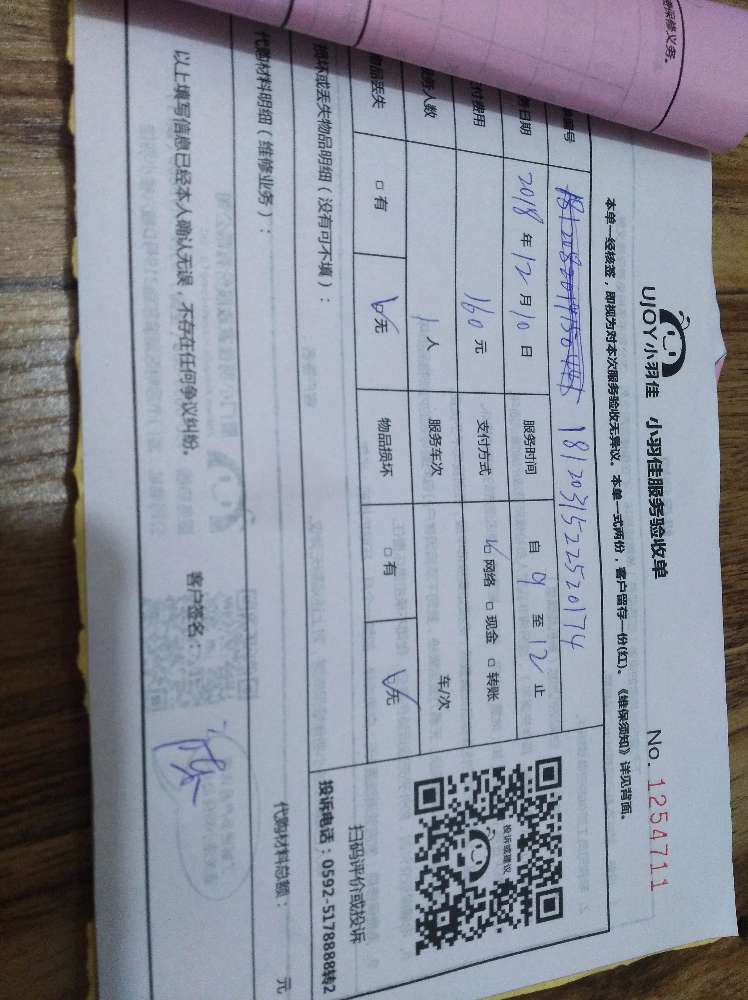 保修义务。
UJOY小羽佳 小羽佳服务验收单
No. 1254711
本单一经核签，即视为对本次服务验收无异议。本单一式两份，客户留存一份(红)。《维保须知》详见背面。
编号 1812031522520174
日期 2018 年 12 月 10 日 服务时间 自 9 至 12 止
付费用 160 元 支付方式 ☑网络 □现金 □转账
人数 1 人 服务车次 车/次
物品丢失 □有 ☑无 物品损坏 □有 ☑无
投诉或建议
扫码评价或投诉
损坏或丢失物品明细（没有可不填）：
投诉电话：0592-5178888转2
代购材料明细（维修业务）：
代购材料总额： 元
以上填写信息已经本人确认无误，不存在任何争议纠纷。
客户签名：